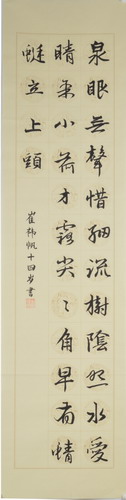 泉眼無聲惜細流樹陰照水愛
晴柔小荷才露尖々角早有蜻
蜓立上頭
崔帆十四岁書